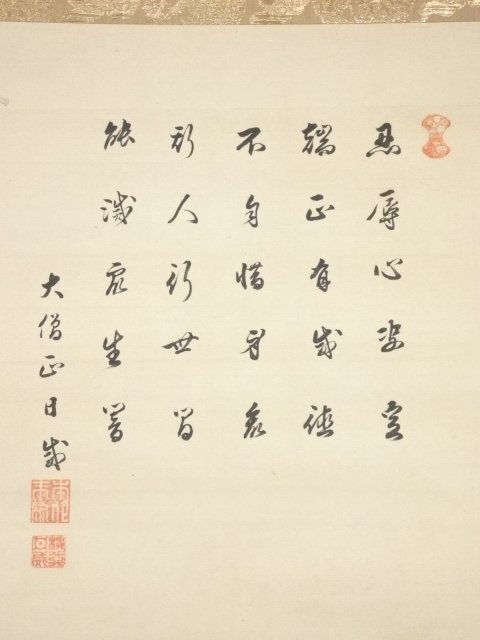 忍辱心決定
端正有威徳
不自惜身
斯人行世間
能滅衆生闇
大僧正日威